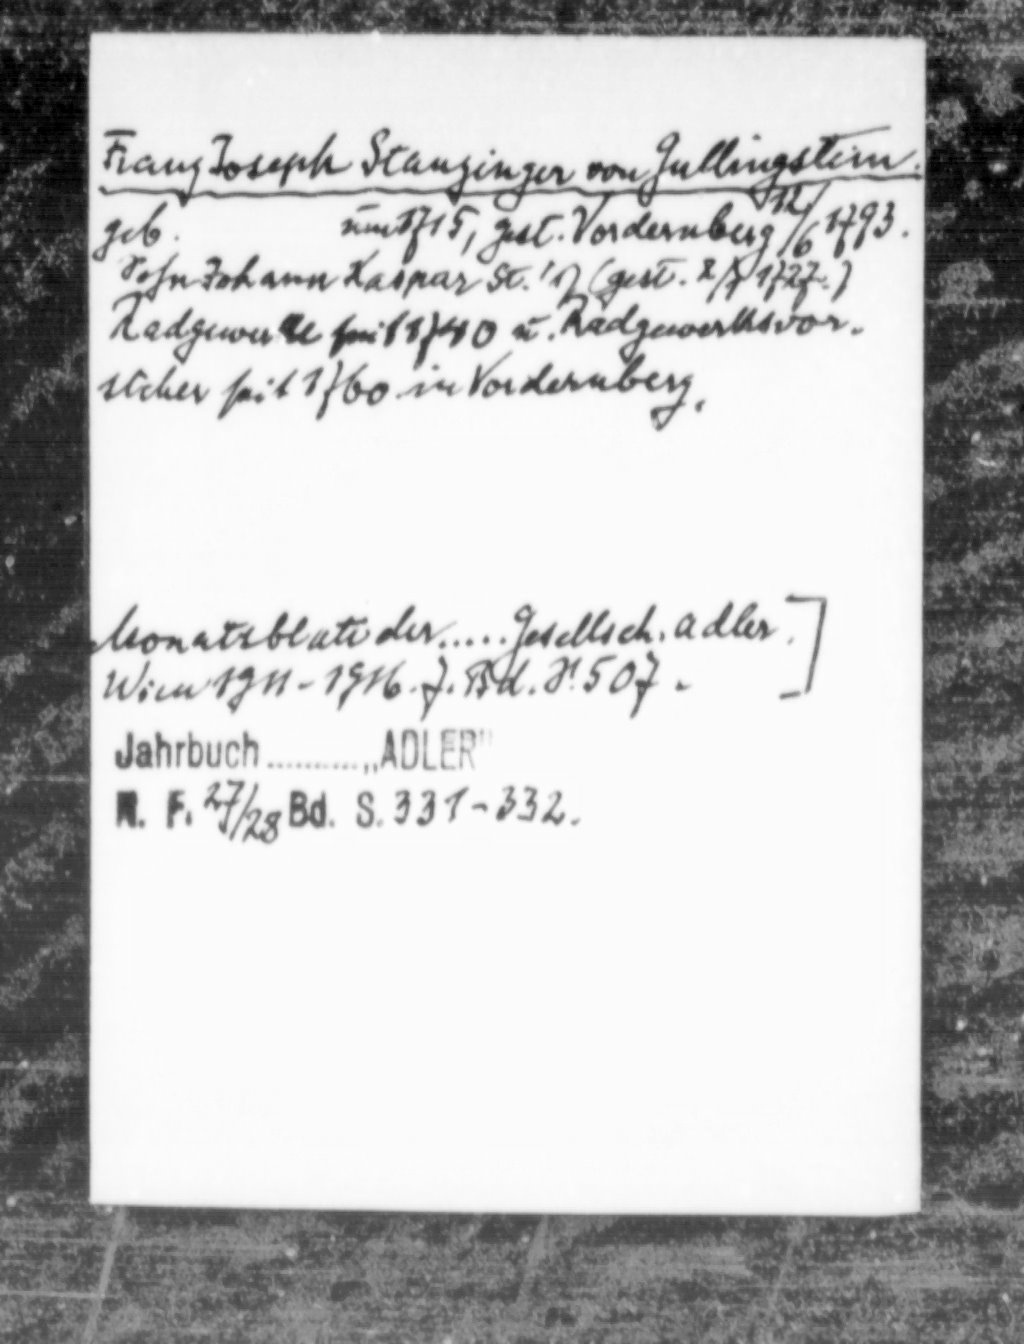 Franz Joseph Stanzinger von Gullingstein.
geb. um 1715, gest. Vordernberg 12/6 1793.
Sohn Johann Kaspar St.' (gest. 1727.)
Radgewerke seit 1740 u. Radgewerksvor-
steher seit 1760 in Vordernberg.
Monatsblatt der..... Gesellsch. Adler.]
Wien 1911-1916. 7. Bd. S. 507.
Jahrbuch .......... „ADLER"
N. F. 27/28 Bd. S. 331-332.